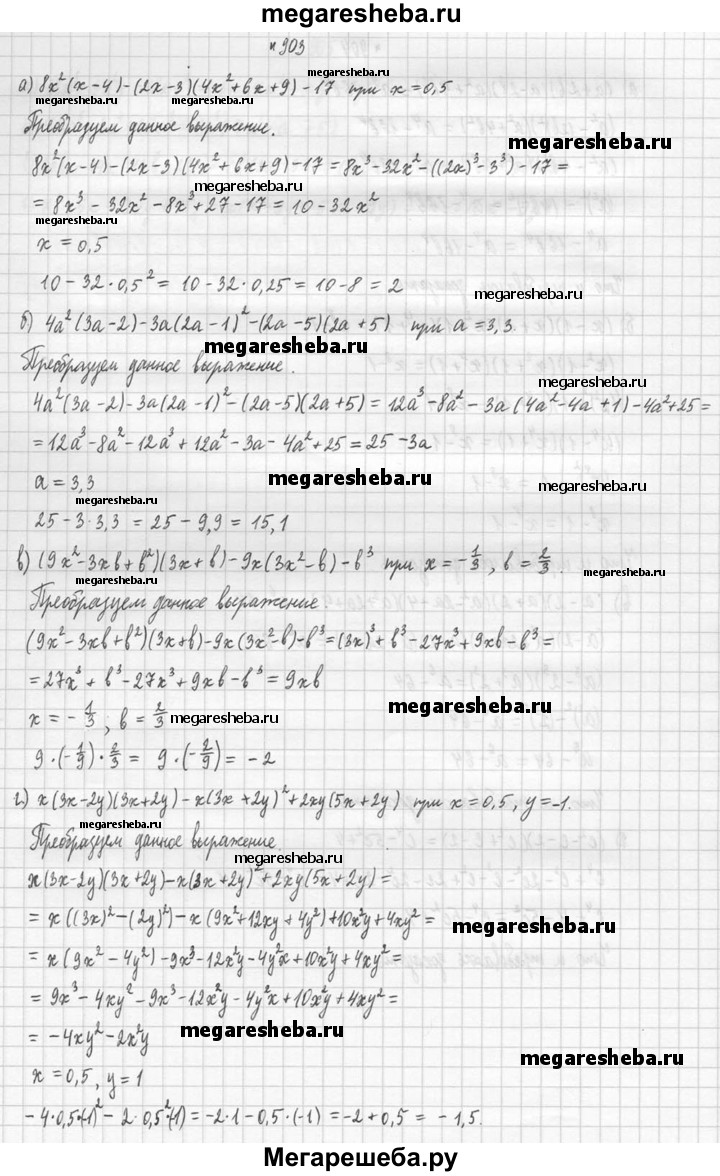 megaresheba.ru
№ 903
а) 8x²(x-4)-(2x-3)(4x²+6x+9)-17 при x=0,5
megaresheba.ru
megaresheba.ru megaresheba.ru
Преобразуем данное выражение.
megaresheba.ru
8x²(x-4)-(2x-3)(4x²+6x+9)-17=8x³-32x²-((2x)³-3³)-17=
megaresheba.ru
=8x³-32x²-8x³+27-17=10-32x²
megaresheba.ru
x=0,5
10-32·0,5²=10-32·0,25=10-8=2
megaresheba.ru
б) 4a²(3a-2)-3a(2a-1)²-(2a-5)(2a+5) при a=3,3.
megaresheba.ru
Преобразуем данное выражение.
megaresheba.ru
4a²(3a-2)-3a(2a-1)²-(2a-5)(2a+5)=12a³-8a²-3a(4a²-4a+1)-4a²+25=
=12a³-8a²-12a³+12a²-3a-4a²+25=25-3a
a=3,3
megaresheba.ru
megaresheba.ru
megaresheba.ru
25-3·3,3=25-9,9=15,1
в) (9x²-3xb+b²)(3x+b)-9x(3x²-b)-b³ при x=-1/3, b=2/3.
megaresheba.ru
megaresheba.ru
Преобразуем данное выражение.
(9x²-3xb+b²)(3x+b)-9x(3x²-b)-b³=(3x)³+b³-27x³+9xb-b³=
=27x³+b³-27x³+9xb-b³=9xb
x=-1/3; b=2/3
megaresheba.ru
megaresheba.ru
9·(-1/9)·2/3=9·(-2/9)=-2
г) x(3x-2y)(3x+2y)-x(3x+2y)²+2xy(5x+2y) при x=0,5, y=-1.
megaresheba.ru
Преобразуем данное выражение.
megaresheba.ru
x(3x-2y)(3x+2y)-x(3x+2y)²+2xy(5x+2y)=
=x((3x)²-(2y)²)-x(9x²+12xy+4y²)+10x²y+4xy²=
megaresheba.ru
=x(9x²-4y²)-9x³-12x²y-4y²x+10x²y+4xy²=
=9x³-4xy²-9x³-12x²y-4y²x+10x²y+4xy²=
=-4xy²-2x²y
megaresheba.ru
megaresheba.ru
x=0,5, y=1
-4·0,5·(-1)²-2·0,5²·(-1)=-2·1-0,5·(-1)=-2+0,5=-1,5.
Мегарешеба.ру